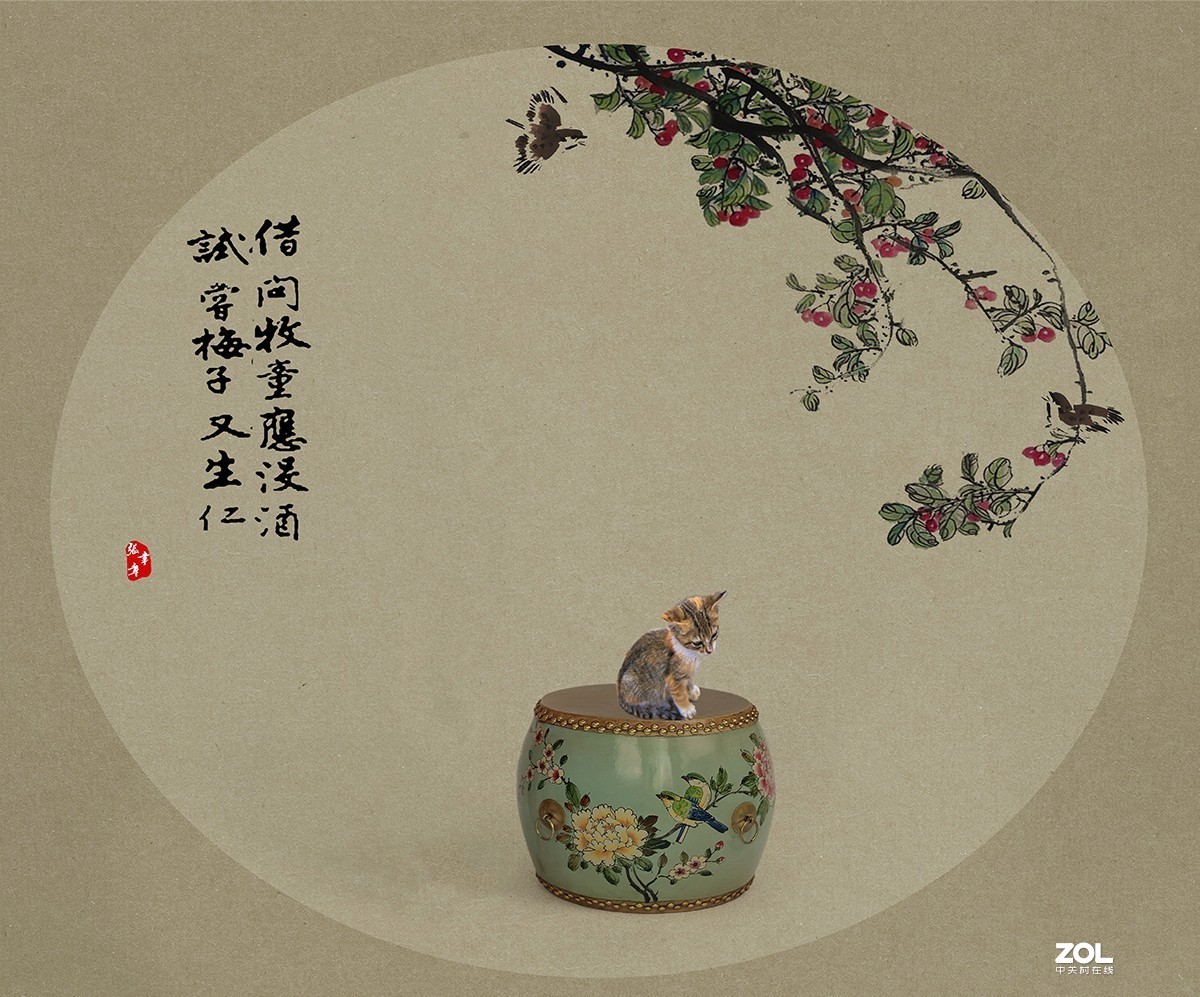 借问牧童應没酒
試嘗梅子又生仁
ZOL
中关村在线